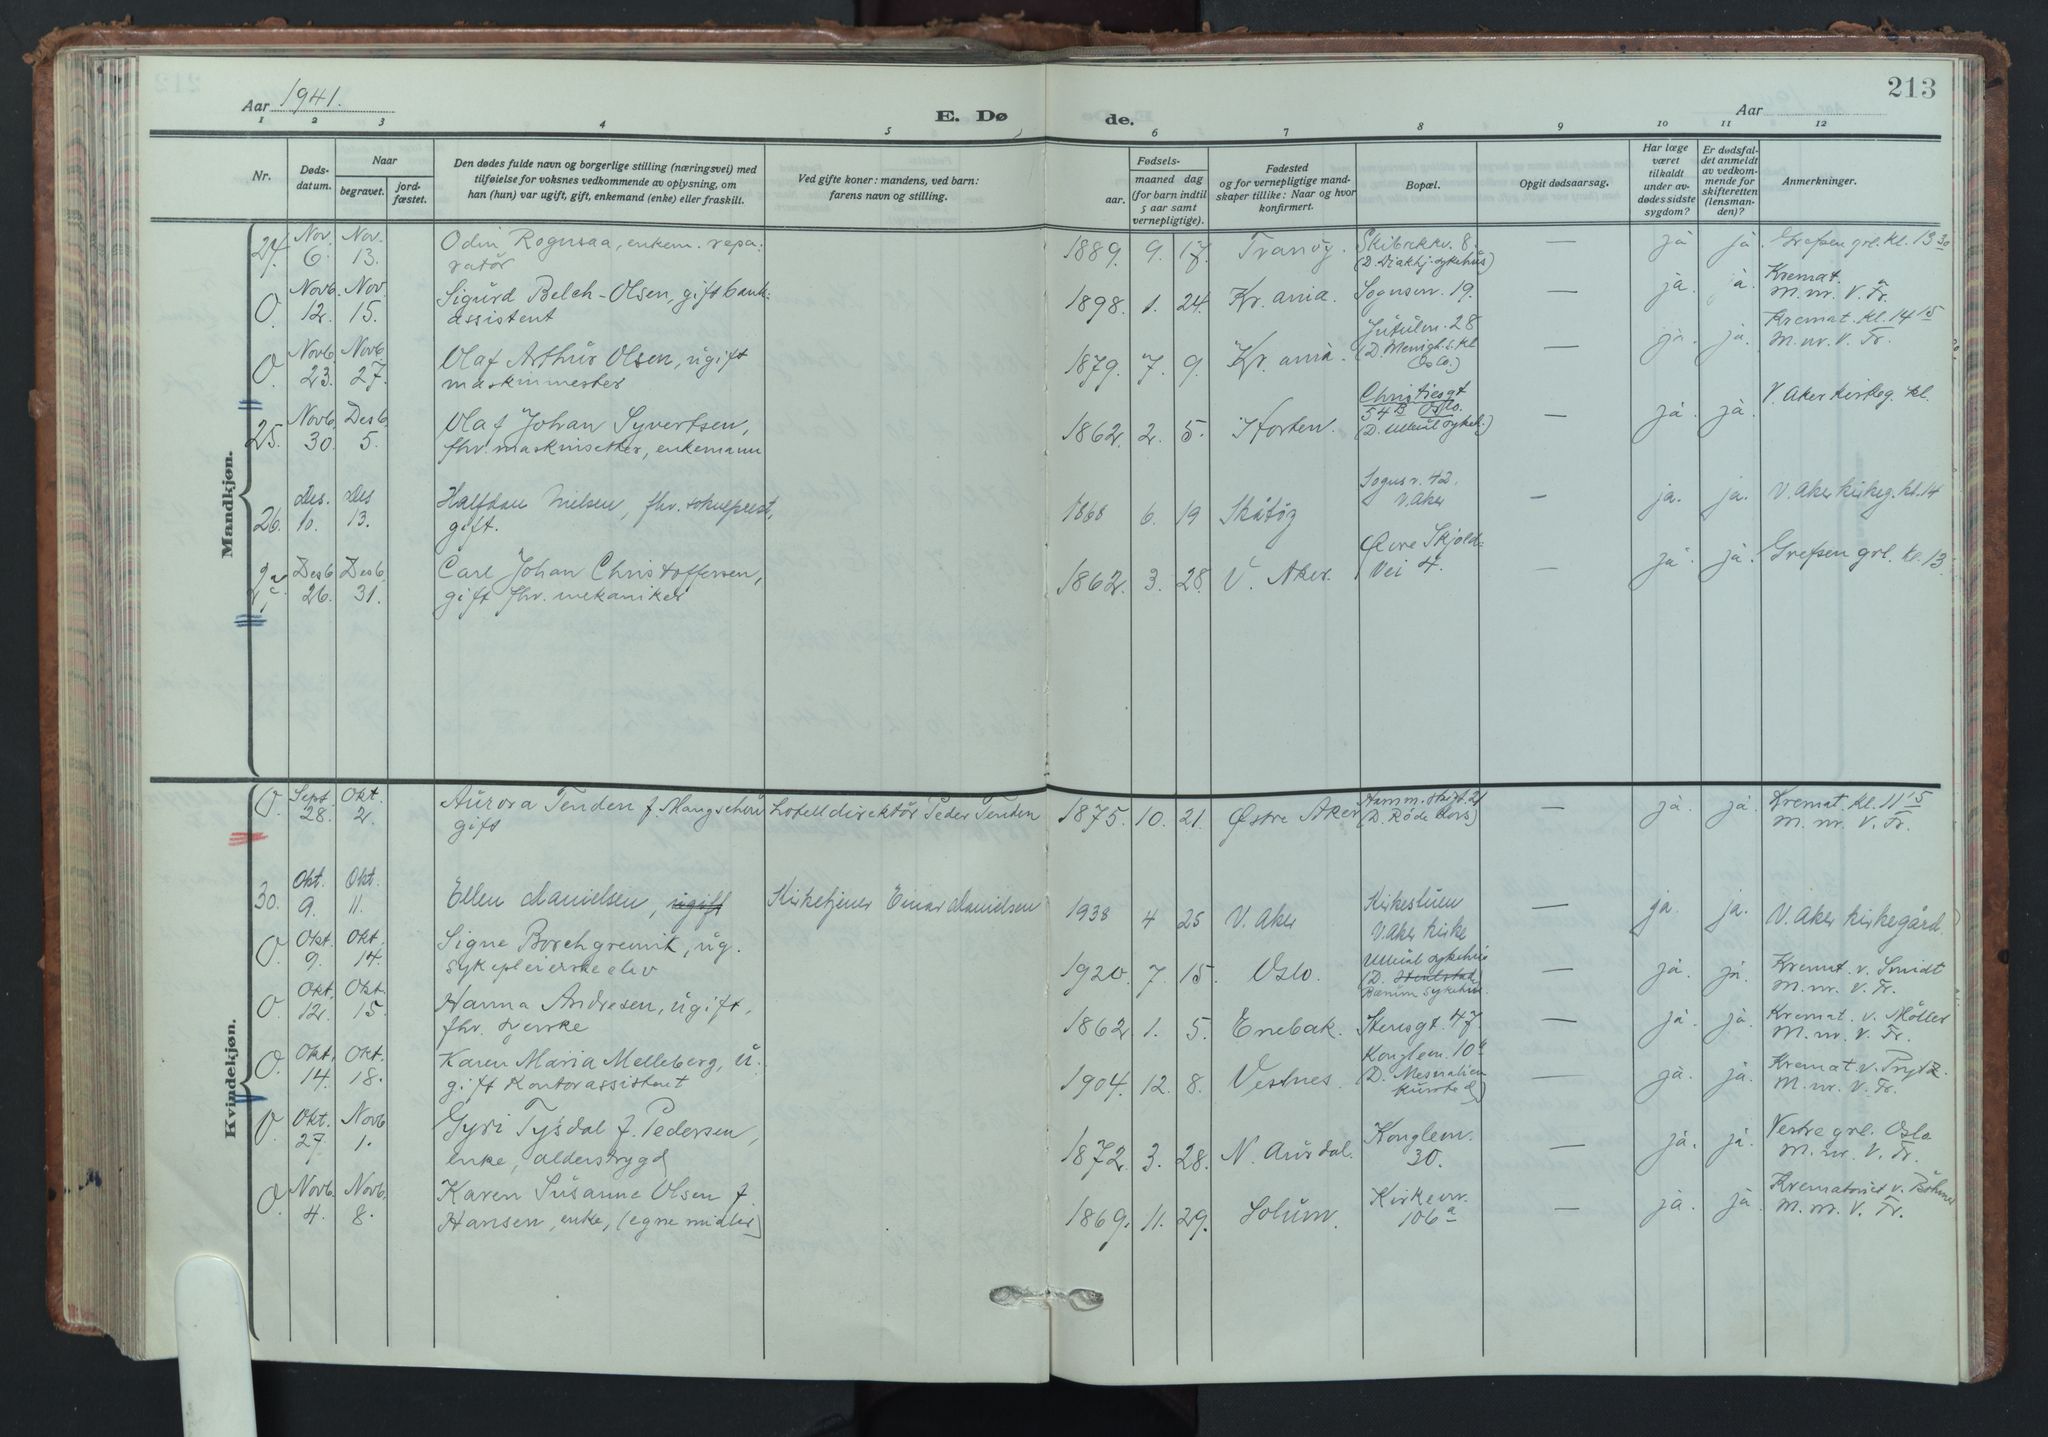 213
Aar 1941.
E. Dø de.
Aar
1 2 3 4 5 6 7 8 9 10 11 12
Nr.
Døds-
datum.
Naar
begravet.
jord-
fæstet.
Den dødes fulde navn og borgerlige stilling (næringsvei) med
tilføielse for voksnes vedkommende av oplysning, om
han (hun) var ugift, gift, enkemand (enke) eller fraskilt.
Ved gifte koner: mandens, ved barn:
farens navn og stilling.
Fødsels-
aar.
maaned dag
(for barn indtil
5 aar samt
vernepligtige).
Fødested
og for vernepligtige mand-
skaper tillike: Naar og hvor
konfirmert.
Bopæl.
Opgit dødsaarsag.
Har læge
været
tilkaldt
under av-
dødes sidste
sygdom?
Er dødsfal-
det anmeldt
av vedkom-
mende for
skifteretten
(lensman-
den)?
Anmerkninger.
Mandkjøn.
24. Nov. 6. Nov. 13. Odin Rognsaa, enkem. repa-
ratør 1889. 9. 17. Tranöy. Skibakkv. 8.
(D. Diakhj. sykehus) — ja ja. Grefsen grl. kl. 13 30
O. Novb. 12. Nov. 15. Sigurd Belch-Olsen, gift bank-
assistent 1898. 1. 24. Kr.ania. Sognsv. 19. — ja. ja. Kremat.
M. nr. V. Fr.
O. Novb. 23. Novb. 27. Olaf Arthur Olsen, ugift
maskinmester 1879. 7. 9. Kr.ania. Jutulv. 28
(D. Menigh.s. kl
Oslo.) — ja. ja. Kremat. kl. 14 15
M. nr. V. Fr.
25. Novb. 30. Desb. 5. Olaf Johan Syvertsen,
fhv. maskinsetter, enkemann 1862. 2. 5. Horten. Christiesgt
54 B Oslo.
(D. Ullevål sykeh.) — ja. ja. V. Aker kirkeg. kl.
26. Des. 10. Des 13. Halfdan Nielsen, fhv. sokneprest,
gift. 1868 6. 19 Skåtöy Sognsv. 42.
V. Aker — ja. ja. V. Aker kirkeg. kl. 14
27. Desb. 26. Desb. 31. Carl Johan Christoffersen,
gift fhv. mekaniker 1862. 3. 28. V. Aker. Øvre Skjold-
vei 4. — ja. ja. Grefsen grl. kl. 13.
Kvindekjøn.
O. Sept. 28. Okt. 2. Aurora Tenden f. Mangschou
gift Hotelldirektör Peder Tenden 1875. 10. 21. Østre Aker
(D. Røde Kors) — ja. ja. Kremat. kl. 11 15
M. nr. V. Fr.
30. Okt. 9. Okt. 11. Ellen Danielsen, ugift Kirketjener Einar Danielsen 1938 4 25 V. Aker Kirkestuen
V. Aker kirke — ja. ja. V. Aker kirkegård.
O. Okt. 9. Okt. 14. Signe Borchgrevink, ug.
sykepleierske elev 1920. 7. 15. Oslo. Ullevål sykehus
(D.
Bærum sykehus. — ja. ja. Kremat. v. Smidt
M. nr. V. Fr.
O. Okt. 12. Okt. 15. Hanna Andresen, ugift,
fhv. syerske 1862. 1. 5. Enebak. Stensgt. 47. — ja. ja. Kremat. v. Möller
M. nr. V. Fr.
O. Okt. 14. Okt. 18. Karen Maria Melleberg, u-
gift Kontorassistent 1904. 12. 8. Vestnes. Konglev. 10 a
(D. Mesnalien
kursted) — ja. ja. Kremat v. Prytz.
M. nr. V. Fr.
O. Okt. 27. Novb 1. Gyri Tysdal f. Pedersen,
enke, alderstrygd 1872. 3. 28. N. Aurdal. Konglev.
30. — ja. ja. Vestre grl. Oslo
M. nr. V. Fr.
O. Novb. 4. Novb. 8. Karen Susanne Olsen f
Hansen, enke, (egne midler) 1869. 11. 29. Solum. Kirkevv.
106 a — ja. ja. Krematoriet v. Böhmer
M. nr. V. Fr.